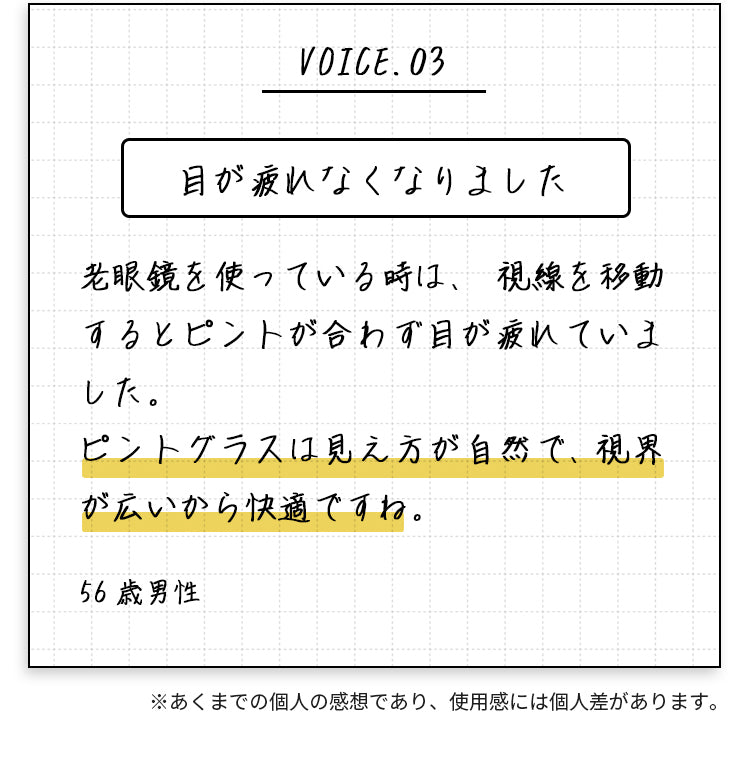 VOICE.03
目が疲れなくなりました
老眼鏡を使っている時は、視線を移動
するとピントが合わず目が疲れていま
した。
ピントグラスは見え方が自然で、視界
が広いから快適ですね。
56歳男性
※あくまでの個人の感想であり、使用感には個人差があります。